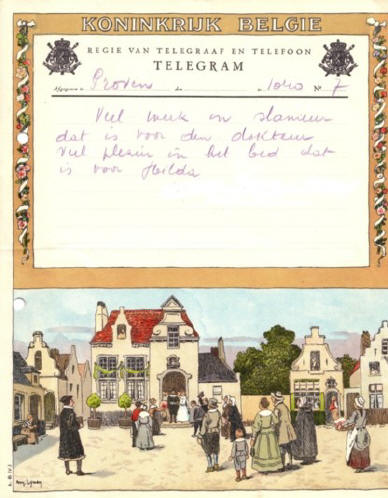 KONINKRIJK BELGIE
REGIE VAN TELEGRAAF EN TELEFOON
TELEGRAM
Afgegeven te Proven de te 1040 Nr 7
Veel werk en
dat is voor den dokteur
Veel plezier in het bed dat
is voor Hilda